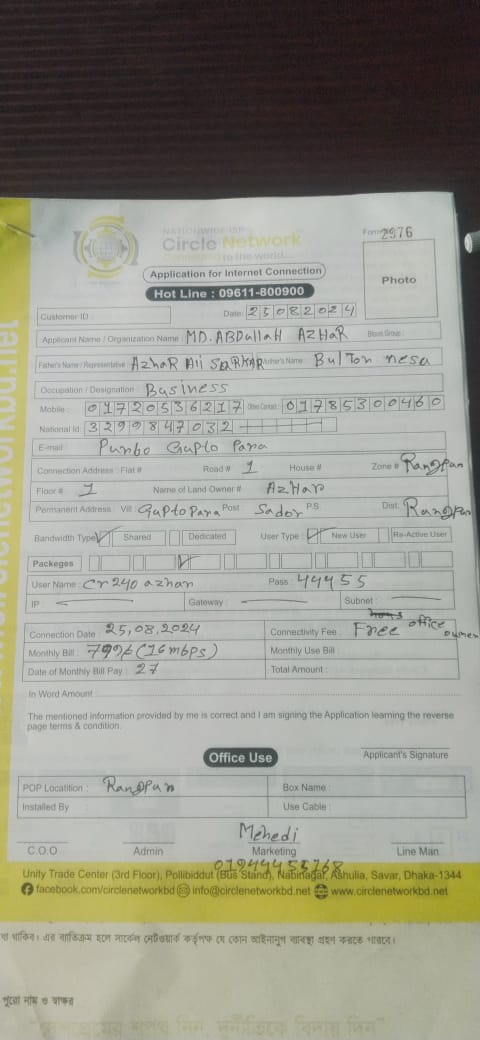 NATIONWIDE ISP
Circle Network
Connected to the world...
Form 2976
Application for Internet Connection
Photo
Hot Line : 09611-800900
Customer ID :
Date: 25082024
Applicant Name / Organization Name : MD. ABDullaH AZHaR Blood Group :
Father's Name / Representative : AzhaR Ali SARKAR Mother's Name : BulTon nesa
Occupation / Designation : Business
Mobile : 01720536217 Other Contact : 01785300460
National Id: 3299847032
E-mail :
Purbo Gupto Para
Connection Address : Flat # Road # 1 House # Zone # Rangpur
Floor # 1 Name of Land Owner # AzHar
Permanent Address : Vill : GuptoPara Post : Sador P.S. Dist: Rangpur
Bandwidth Type Shared Dedicated User Type : New User Re-Active User
Packeges
User Name : Cr240 azhar Pass : 44455
IP : Gateway : Subnet :
Connection Date : 25,08,2024 Connectivity Fee : Free office owner
Monthly Bill : (16 mbps) Monthly Use Bill :
Date of Monthly Bill Pay : 27 Total Amount :
In Word Amount :
The mentioned information provided by me is correct and I am signing the Application learning the reverse
page terms & condition.
Office Use
Applicant's Signature
POP Locatition : Rangpur Box Name :
Installed By Use Cable :
Mehedi
C.O.O Admin Marketing Line Man
Unity Trade Center (3rd Floor), Pollibiddut (Bus Stand), Nabinagar, Ashulia, Savar, Dhaka-1344
facebook.com/circlenetworkbd info@circlenetworkbd.net www.circlenetworkbd.net
থাকিব। এর ব্যতিক্রম হলে সার্কেল নেটওয়ার্ক কর্তৃপক্ষ যে কোন আইনানুগ ব্যবস্থা গ্রহণ করতে পারবে।
পুরো নাম ও স্বাক্ষর